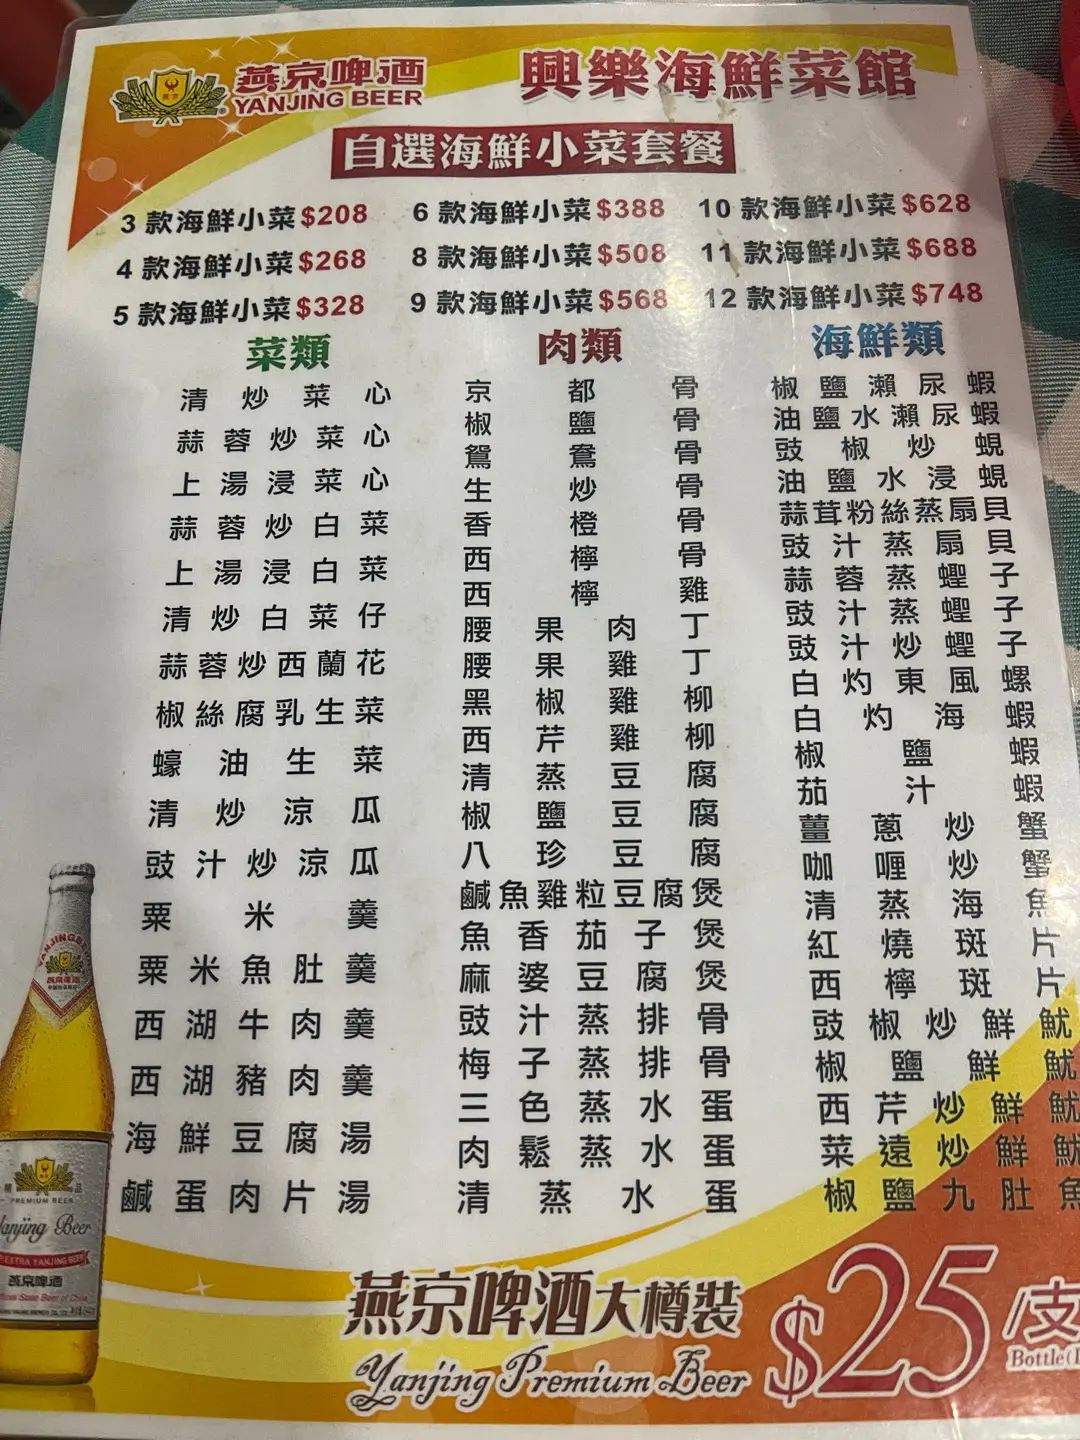 燕京啤酒
YANJING BEER
興樂海鮮菜館
自選海鮮小菜套餐
3 款海鮮小菜$208
4 款海鮮小菜$268
5 款海鮮小菜$328
6 款海鮮小菜$388
8 款海鮮小菜$508
9 款海鮮小菜$568
10 款海鮮小菜$628
11 款海鮮小菜$688
12 款海鮮小菜$748
菜類
清炒菜心
蒜蓉炒菜心
上湯浸菜心
蒜蓉炒白菜
上湯浸白菜
清炒白菜仔
蒜蓉炒西蘭花
椒絲腐乳生菜
蠔油生菜
清炒涼瓜
豉汁炒涼瓜
粟米羹
粟米魚肚羹
西湖牛肉羹
西湖豬肉羹
海鮮豆腐湯
鹹蛋肉片湯
肉類
京都骨
椒鹽骨
鴛鴦骨
生炒骨
香橙骨
西檸骨
西檸雞
腰果肉丁
腰果雞丁
黑椒雞柳
西芹雞柳
清蒸豆腐
椒鹽豆腐
八珍豆腐
鹹魚雞粒豆腐煲
魚香茄子煲
麻婆豆腐煲
豉汁蒸排骨
梅子蒸排骨
三色蒸水蛋
肉鬆蒸水蛋
清蒸水蛋
海鮮類
椒鹽瀨尿蝦
油鹽水瀨尿蝦
豉椒炒蜆
油鹽水浸蜆
蒜茸粉絲蒸扇貝
豉汁蒸扇貝
蒜蓉蒸蟶子
豉汁蒸蟶子
豉汁炒蟶子
白灼東風螺
白灼海蝦
椒鹽蝦
茄汁蝦
薑蔥炒蟹
咖喱炒蟹
清蒸海魚
紅燒斑片
西檸斑片
豉椒炒鮮魷
椒鹽鮮魷
西芹炒鮮魷
菜遠炒鮮魷
椒鹽九肚魚
YANJINGBE
燕京啤酒
精
品
PREMIUM BEER
Yanjing Beer
EXTRA YANJING BEER
燕京啤酒
燕京啤酒大樽裝
Yanjing Premium Beer
$25/支
Bottle